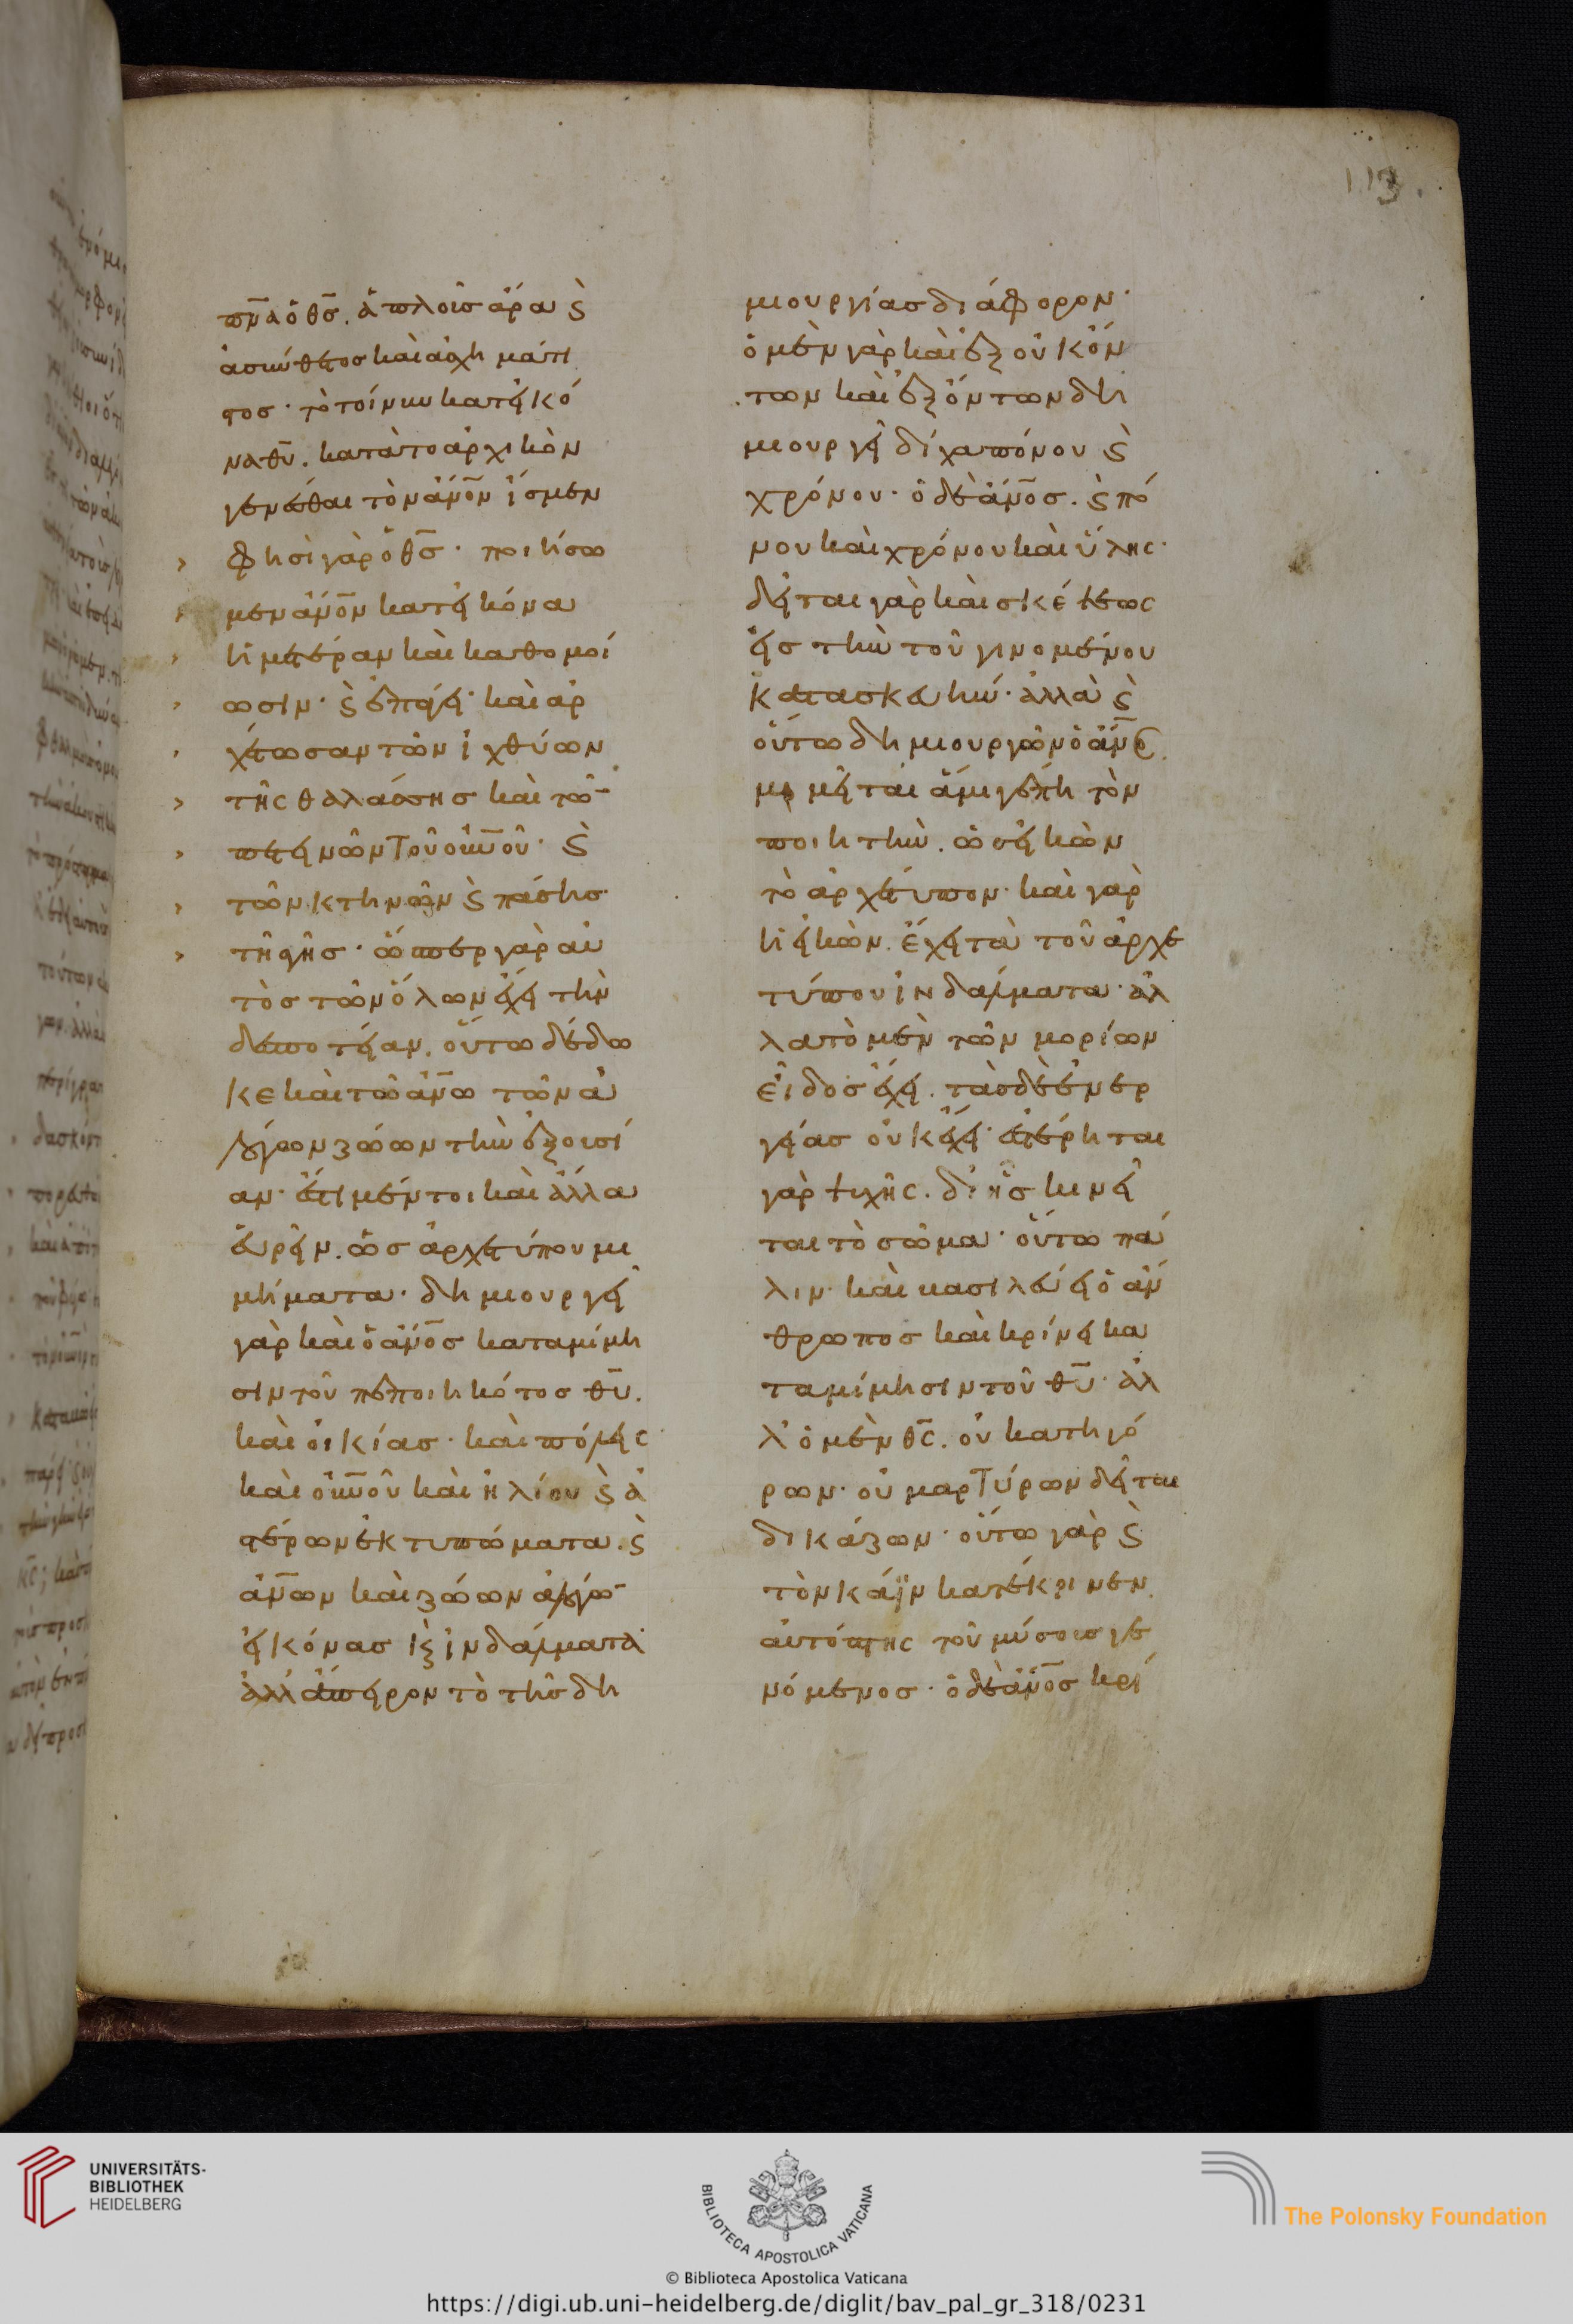 πν̅α ὁ θ̅ς. ἁπλοῦς ἄρα ϛ̀
ἀσύνθετος καὶ ἀσχημάτι
στος· τὸ τοίνυν κατεἰκό
να θ̅υ. κατὰ τὸ ἀρχικὸν
γενέσθαι τὸν ἄν̅ον ἴσμεν
φησὶ γὰρ ὁ θ̅ς· ποιήσω
μεν ἄν̅ον κατεἰκόνα
ἡμετέραν καὶ καθομοί
ωσιν· ϛ̀ ἐπάγει· καὶ ἀρ
χέτωσαν τῶν ἰχθύων
τῆς θαλάσσης καὶ τῶ̅
πετεινῶν τοῦ οὐν̅οῦ· ϛ̀
τῶν κτηνῶν ϛ̀ πάσης
τῆς γῆς· ὥσπερ γὰρ αὐ
τὸς τῶν ὅλων ἔχει τὴν
δεσποτείαν. οὕτω δέδω
κε καὶ τῶ ἀν̅ω τῶν ἀ
λόγων ζώων τὴν ἐξουσί
αν· ἔστι μέντοι καὶ ἄλλα
εὑρεῖν. ὡς ἀρχετύπου μι
μήματα· δημιουργεῖ
γὰρ καὶ ὁ ἄν̅ος καταμίμη
σιν τοῦ πεποιηκότος θ̅υ.
καὶ οἰκίας· καὶ πόλεις
καὶ οὐν̅οῦ καὶ ἡλίου ϛ̀ ἀ
στέρων ἐκτυπώματα. ϛ̀
ἀν̅ων καὶ ζώων ἀλόγω̅
εἰκόνας ϛ̀ ἰνδάλματα
ἀλλ ἄπειρον τὸ τῆς δη
μιουργίας διάφορον·
ὁ μὲν γὰρ καὶ ἐξ οὐκ ὄν
των καὶ ἐξ ὄντων δη
μιουργεῖ δίχα πόνου ϛ̀
χρόνου· ὁ δὲ ἄν̅ος. ϛ̀ πό
νου καὶ χρόνου καὶ ὕλης·
δεῖται γὰρ καὶ σκέψεως
εἰς τὴν τοῦ γινομένου
κατασκευήν· ἀλλὰ ϛ̀
οὕτω δημιουργῶν ὁ ἄν̅ος
μιμεῖται ἀμιγέπη τὸν
ποιητὴν. ὡς εἰκὼν
τὸ ἀρχέτυπον· καὶ γὰρ
ἡ εἰκὼν. ἔχει τὰ τοῦ ἀρχε
τύπου ἰνδάλματα· ἀλ
λὰ τὸ μὲν τῶν μορίων
εἶδος ἔχει. τὰς δὲ ἐνερ
γείας οὐκ ἔχει· ἐστέρηται
γὰρ ψυχῆς. δι ἧς κινεῖ
ται τὸ σῶμα· οὕτω πά
λιν καὶ βασιλεύει ὁ ἄν
θρωπος καὶ κρίνει κα
τα μίμησιν τοῦ θ̅υ· ἀλ
λ ὁ μὲν θ̅ς. οὐ κατηγό
ρων· οὐ μαρτύρων δεῖται
δικάζων· οὕτω γὰρ ϛ̀
τὸν κάϊν κατέκρινεν
αὐτόπτης τοῦ μύσους γε
νόμενος· ὁ δὲ ἄν̅ος κρί
113.
UNIVERSITÄTS-
BIBLIOTHEK
HEIDELBERG
BIBLIOTECA APOSTOLICA VATICANA
The Polonsky Foundation
© Biblioteca Apostolica Vaticana
https://digi.ub.uni-heidelberg.de/diglit/bav_pal_gr_318/0231